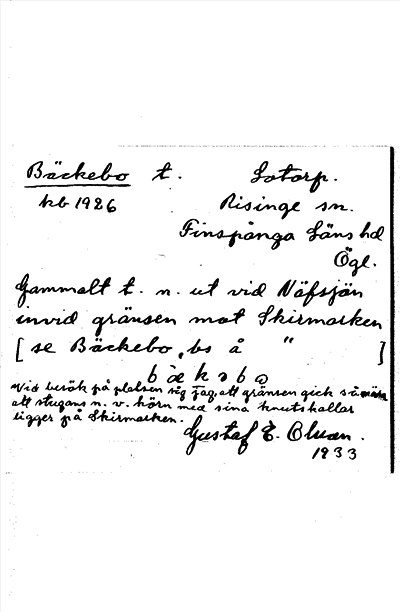 Bäckebo t. Lotorp.
kb 1926 Risinge sn.
Finspånga Läns hd
Ögl.
Gammalt t. n. ut vid Näfsjön
invid gränsen mot Skirmarken
[ se Bäckebo, bs å " ]
Vid besök på platsen såg jag att gränsen gick så nära
att stugans n. v. hörn med sina knutskallar
ligger på Skirmarken.
Gustaf E. Olson.
1933